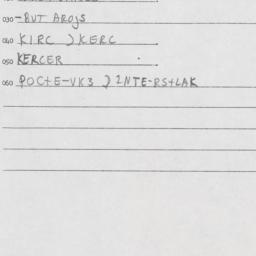 030 -BUT AROJS
040 KIRC ) KERC
050 KERCER
060 POC+E-VK3 ) INTE-RS+LAK